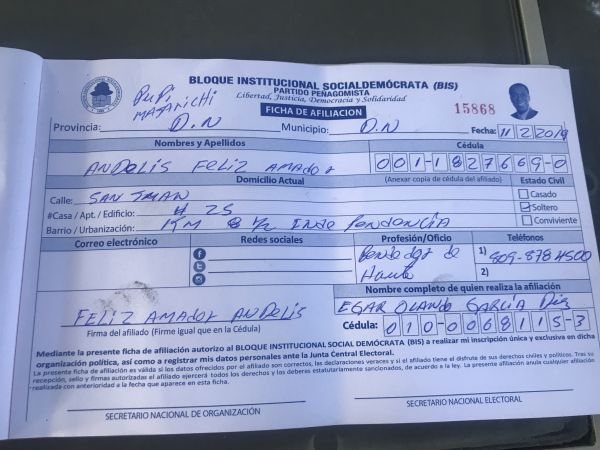 BLOQUE INSTITUCIONAL SOCIALDEMÓCRATA (BIS)
PARTIDO PEÑAGOMISTA
Libertad, Justicia, Democracia y Solidaridad
FICHA DE AFILIACION
15868
PUPI
MATARICHI
Provincia: D.N Municipio: D.N Fecha: 11/2/2019
Nombres y Apellidos Cédula
ANDELIS FELIZ AMADOR 001-1827669-0
Domicilio Actual (Anexar copia de cédula del afiliado) Estado Civil
Calle: SAN JMAN Casado
#Casa / Apt. / Edificio: # 25 Soltero
Barrio / Urbanización: KM 8 1/2 INDE PENDENCIA Conviviente
Correo electrónico Redes sociales Profesión/Oficio Teléfonos
1) 809-878 4500
2)
Nombre completo de quien realiza la afiliación
FELIZ AMADOR ANDELIS EGAR OLANDO GARCIA
Firma del afiliado (Firme igual que en la Cédula) Cédula: 010-0068115-3
Mediante la presente ficha de afiliación autorizo al BLOQUE INSTITUCIONAL SOCIAL DEMÓCRATA (BIS) a realizar mi inscripción única y exclusiva en dicha
organización política, así como a registrar mis datos personales ante la Junta Central Electoral.
La presente ficha de afiliación es válida si los datos ofrecidos por el afiliado son correctos, las declaraciones veraces y si el titular tiene el disfrute de sus derechos civiles y políticos. Tras su
recepción, sello y firmas autorizadas el afiliado ejercerá todos los derechos y los deberes estatutariamente sancionados, de acuerdo a la ley. La presente afiliación anula cualquier afiliación
realizada con anterioridad a la fecha que aparece en esta ficha.
SECRETARIO NACIONAL DE ORGANIZACIÓN SECRETARIO NACIONAL ELECTORAL